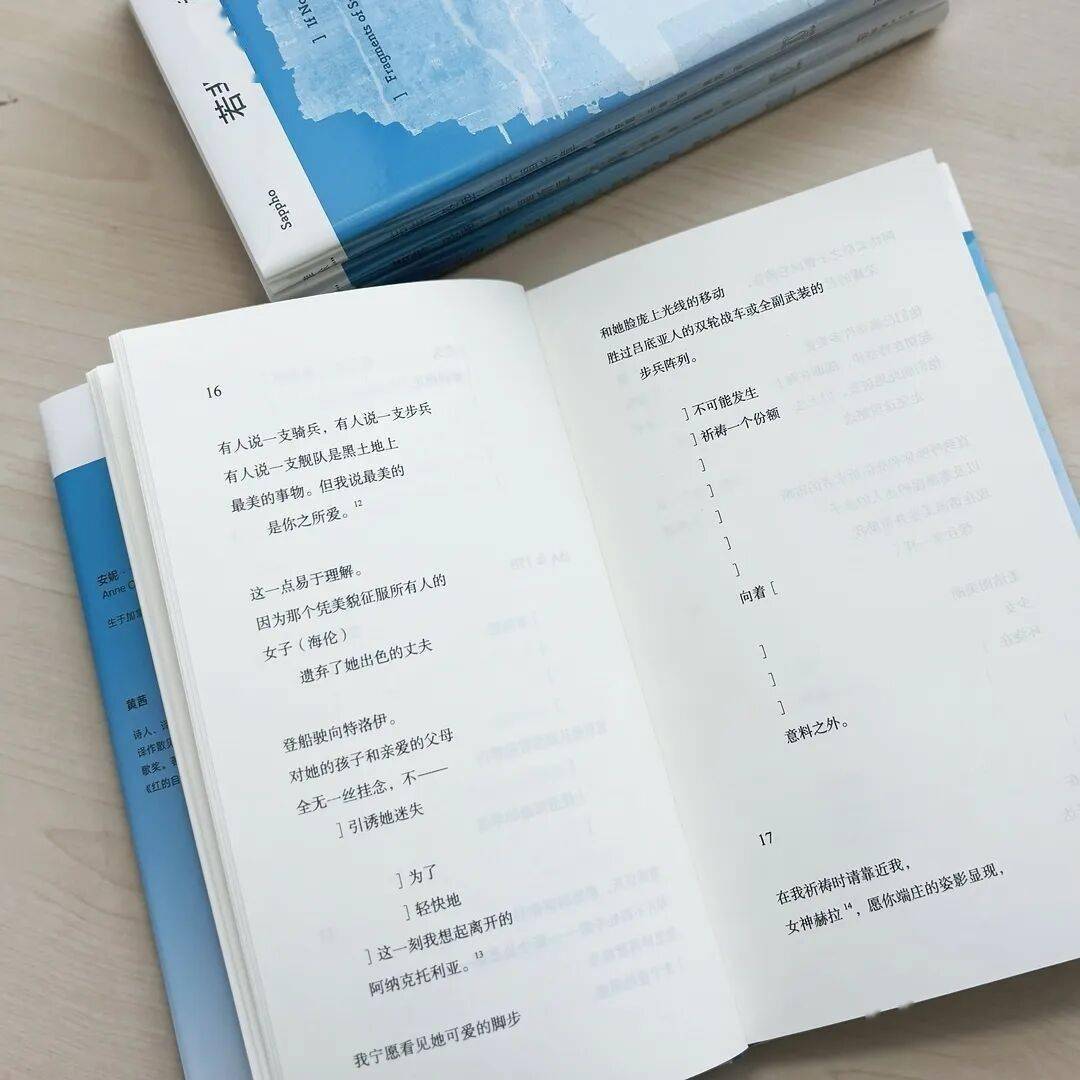 ] If No
] Fragments of S
若
Sappho
16
有人说一支骑兵，有人说一支步兵
有人说一支舰队是黑土地上
最美的事物。但我说最美的
是你之所爱。12
这一点易于理解。
因为那个凭美貌征服所有人的
女子（海伦）
遗弃了她出色的丈夫
登船驶向特洛伊。
对她的孩子和亲爱的父母
全无一丝挂念，不——
] 引诱她迷失
] 为了
] 轻快地
] 这一刻我想起离开的
阿纳克托利亚。13
我宁愿看见她可爱的脚步
和她脸庞上光线的移动
胜过吕底亚人的双轮战车或全副武装的
步兵阵列。
] 不可能发生
] 祈祷一个份额
]
]
]
]
]
向着 [
]
]
]
意料之外。
17
在我祈祷时请靠近我，
女神赫拉14，愿你端庄的姿影显现，
安妮·
Anne C
生于加拿
黄茜
诗人、译
译作散见
歌奖。著
《红的自